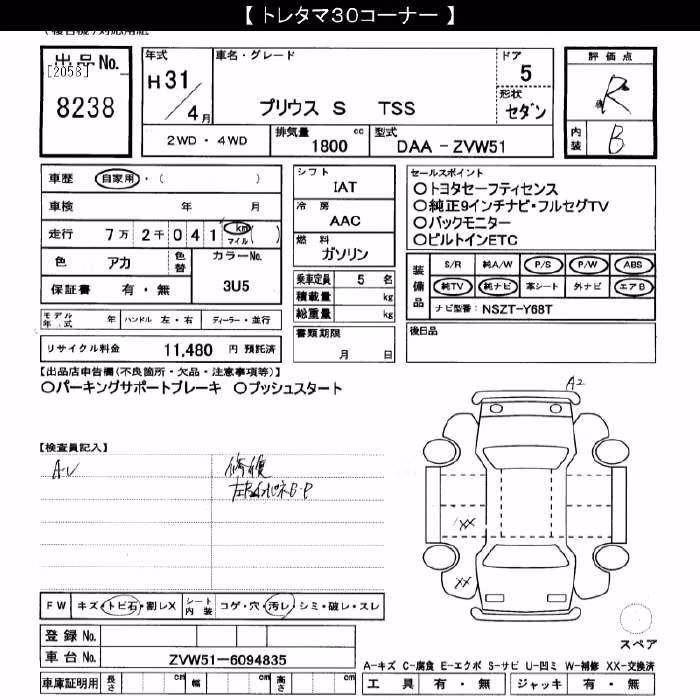 【 トレタマ30コーナー 】
出品No.
[2058]
8238
年式
H31/4月
車名・グレード
プリウス S TSS
ドア
5
形状
セダン
評価点
R
内装
B
2WD・4WD
排気量
1800 cc
型式
DAA-ZVW51
車歴 自家用・( )
車検 年 月
走行 7万2千041 km マイル ( )
色 アカ
色替
カラーNo.
3U5
保証書 有・無
モデル年式 年 ハンドル 左・右 ディーラー・並行
リサイクル料金 11,480 円 預託済
シフト
IAT
冷房
AAC
燃料
ガソリン
乗車定員 5 名
積載量 kg
総重量 kg
書類期限
月 日
セールスポイント
○トヨタセーフティセンス
○純正9インチナビ・フルセグTV
○バックモニター
○ビルトインETC
装備品
S/R 純A/W P/S P/W ABS
純TV 純ナビ 革シート 外ナビ エアB
ナビ型番: NSZT-Y68T
後日品
【出品店申告欄(不良箇所・欠品・注意事項等)】
○パーキングサポートブレーキ ○プッシュスタート
【検査員記入】
A-U
修復
A2
XX
XX
スペア
FW キズ・トビ石・割レX
シート内装 コゲ・穴・汚レ・シミ・破レ・スレ
登録No.
車台No. ZVW51-6094835
車庫証明用 長さ cm 幅 cm 高さ cm
A-キズ C-腐食 E-エクボ S-サビ U-凹ミ W-補修 XX-交換済
工具 有・無 ジャッキ 有・無